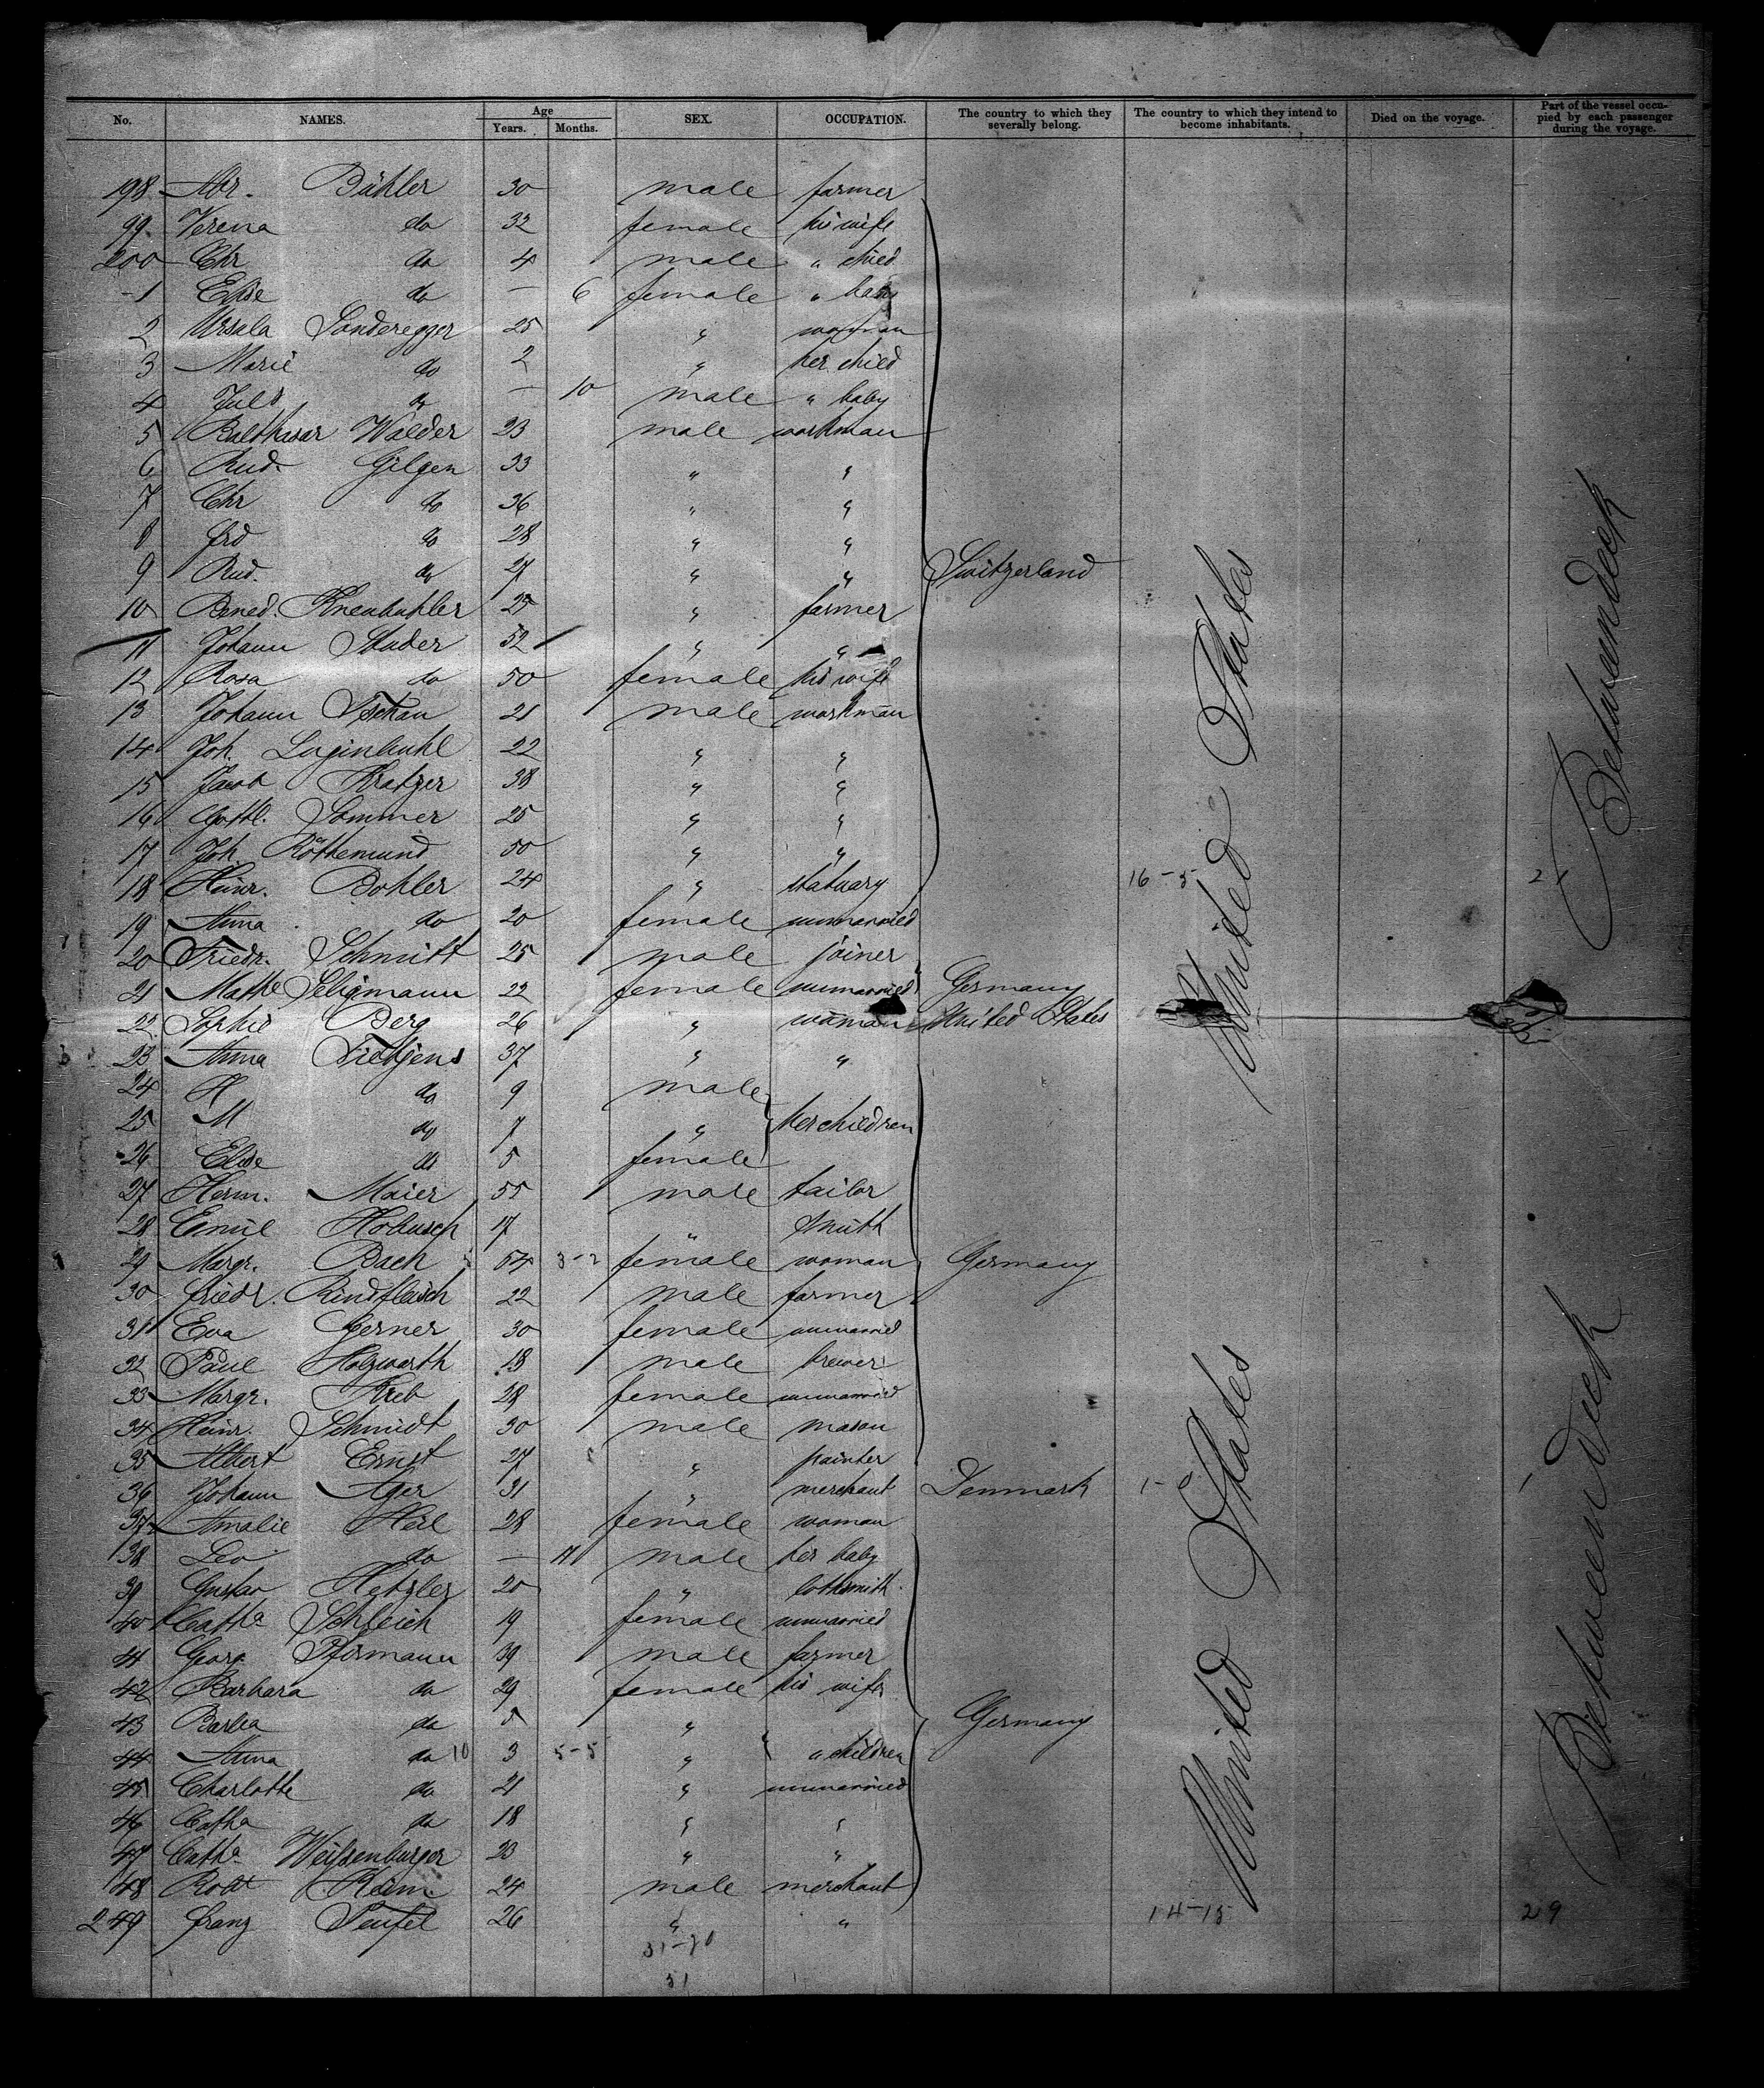 No. NAMES. Age Years. Months. SEX. OCCUPATION. The country to which they severally belong. The country to which they intend to become inhabitants. Died on the voyage. Part of the vessel occupied by each passenger during the voyage.
198 Abr. Bähler 30 male farmer
99 Verena do 32 female his wife
200 Chr do 4 male " child
-1 Elise do — 6 female " baby
2 Ursula Sonderegger 25 " woman
3 Marie do 2 " her child
4 Juls do — 10 male " baby
5 Balthasar Walder 23 male workman
6 Rud. Gilgen 33 " "
7 Chr do 36 " "
8 Frd do 28 " "
9 Rud. do 27 " " Switzerland
10 Bened. Kneubuhler 25 " farmer
11 Johann Studer 52 " "
12 Rosa do 50 female his wife
13 Johann Tschan 21 male workman
14 Joh. Luginbuhl 22 " "
15 Jacob Kratzer 38 " "
16 Gottl. Sommer 25 " "
17 Joh Röthemund 50 " "
18 Heinr. Bohler 24 " statuary 16-5
19 Anna do 20 female unmarried
20 Friedr. Schmitt 25 male joiner
21 Mathe Seligmann 22 female unmarried Germany
22 Sophie Berg 26 " woman United States
23 Anna Tiedtjens 37 " "
24 H do 9 male
25 M do 7 " her children
26 Elise do 5 female
27 Herm. Maier 55 male tailor
28 Emil Hobusch 17 " smith
29 Margr. Bach 54 3-2 female woman Germany
30 Friedr. Rindfleisch 22 male farmer
31 Eva Gerner 30 female unmarried
32 Paul Holzwarth 18 male brewer
33 Margr. Kreb 28 female unmarried
34 Heinr. Schmidt 30 male mason
35 Albert Ernst 27 " painter
36 Johann Ager 31 " merchant Denmark 1-0
37 Amalie Heil 28 female woman
38 Leo do — 11 male her baby
39 Gustav Hetzler 20 " lothsmith
40 Catha Schleich 19 female unmarried
41 Georg Pförmann 39 male farmer
42 Barbara do 29 female his wife
43 Barba do 5 " Germany
44 Anna do 10 3 5-5 " " children
45 Charlotte do 21 " unmarried
46 Catha do 18 " "
47 Catha Weißenburger 23 " "
48 Robt Reim 24 male merchant
249 Franz Teufel 26 " " 14-15 29
31-20
51
United States
Betweendeck
United States
Betweendeck